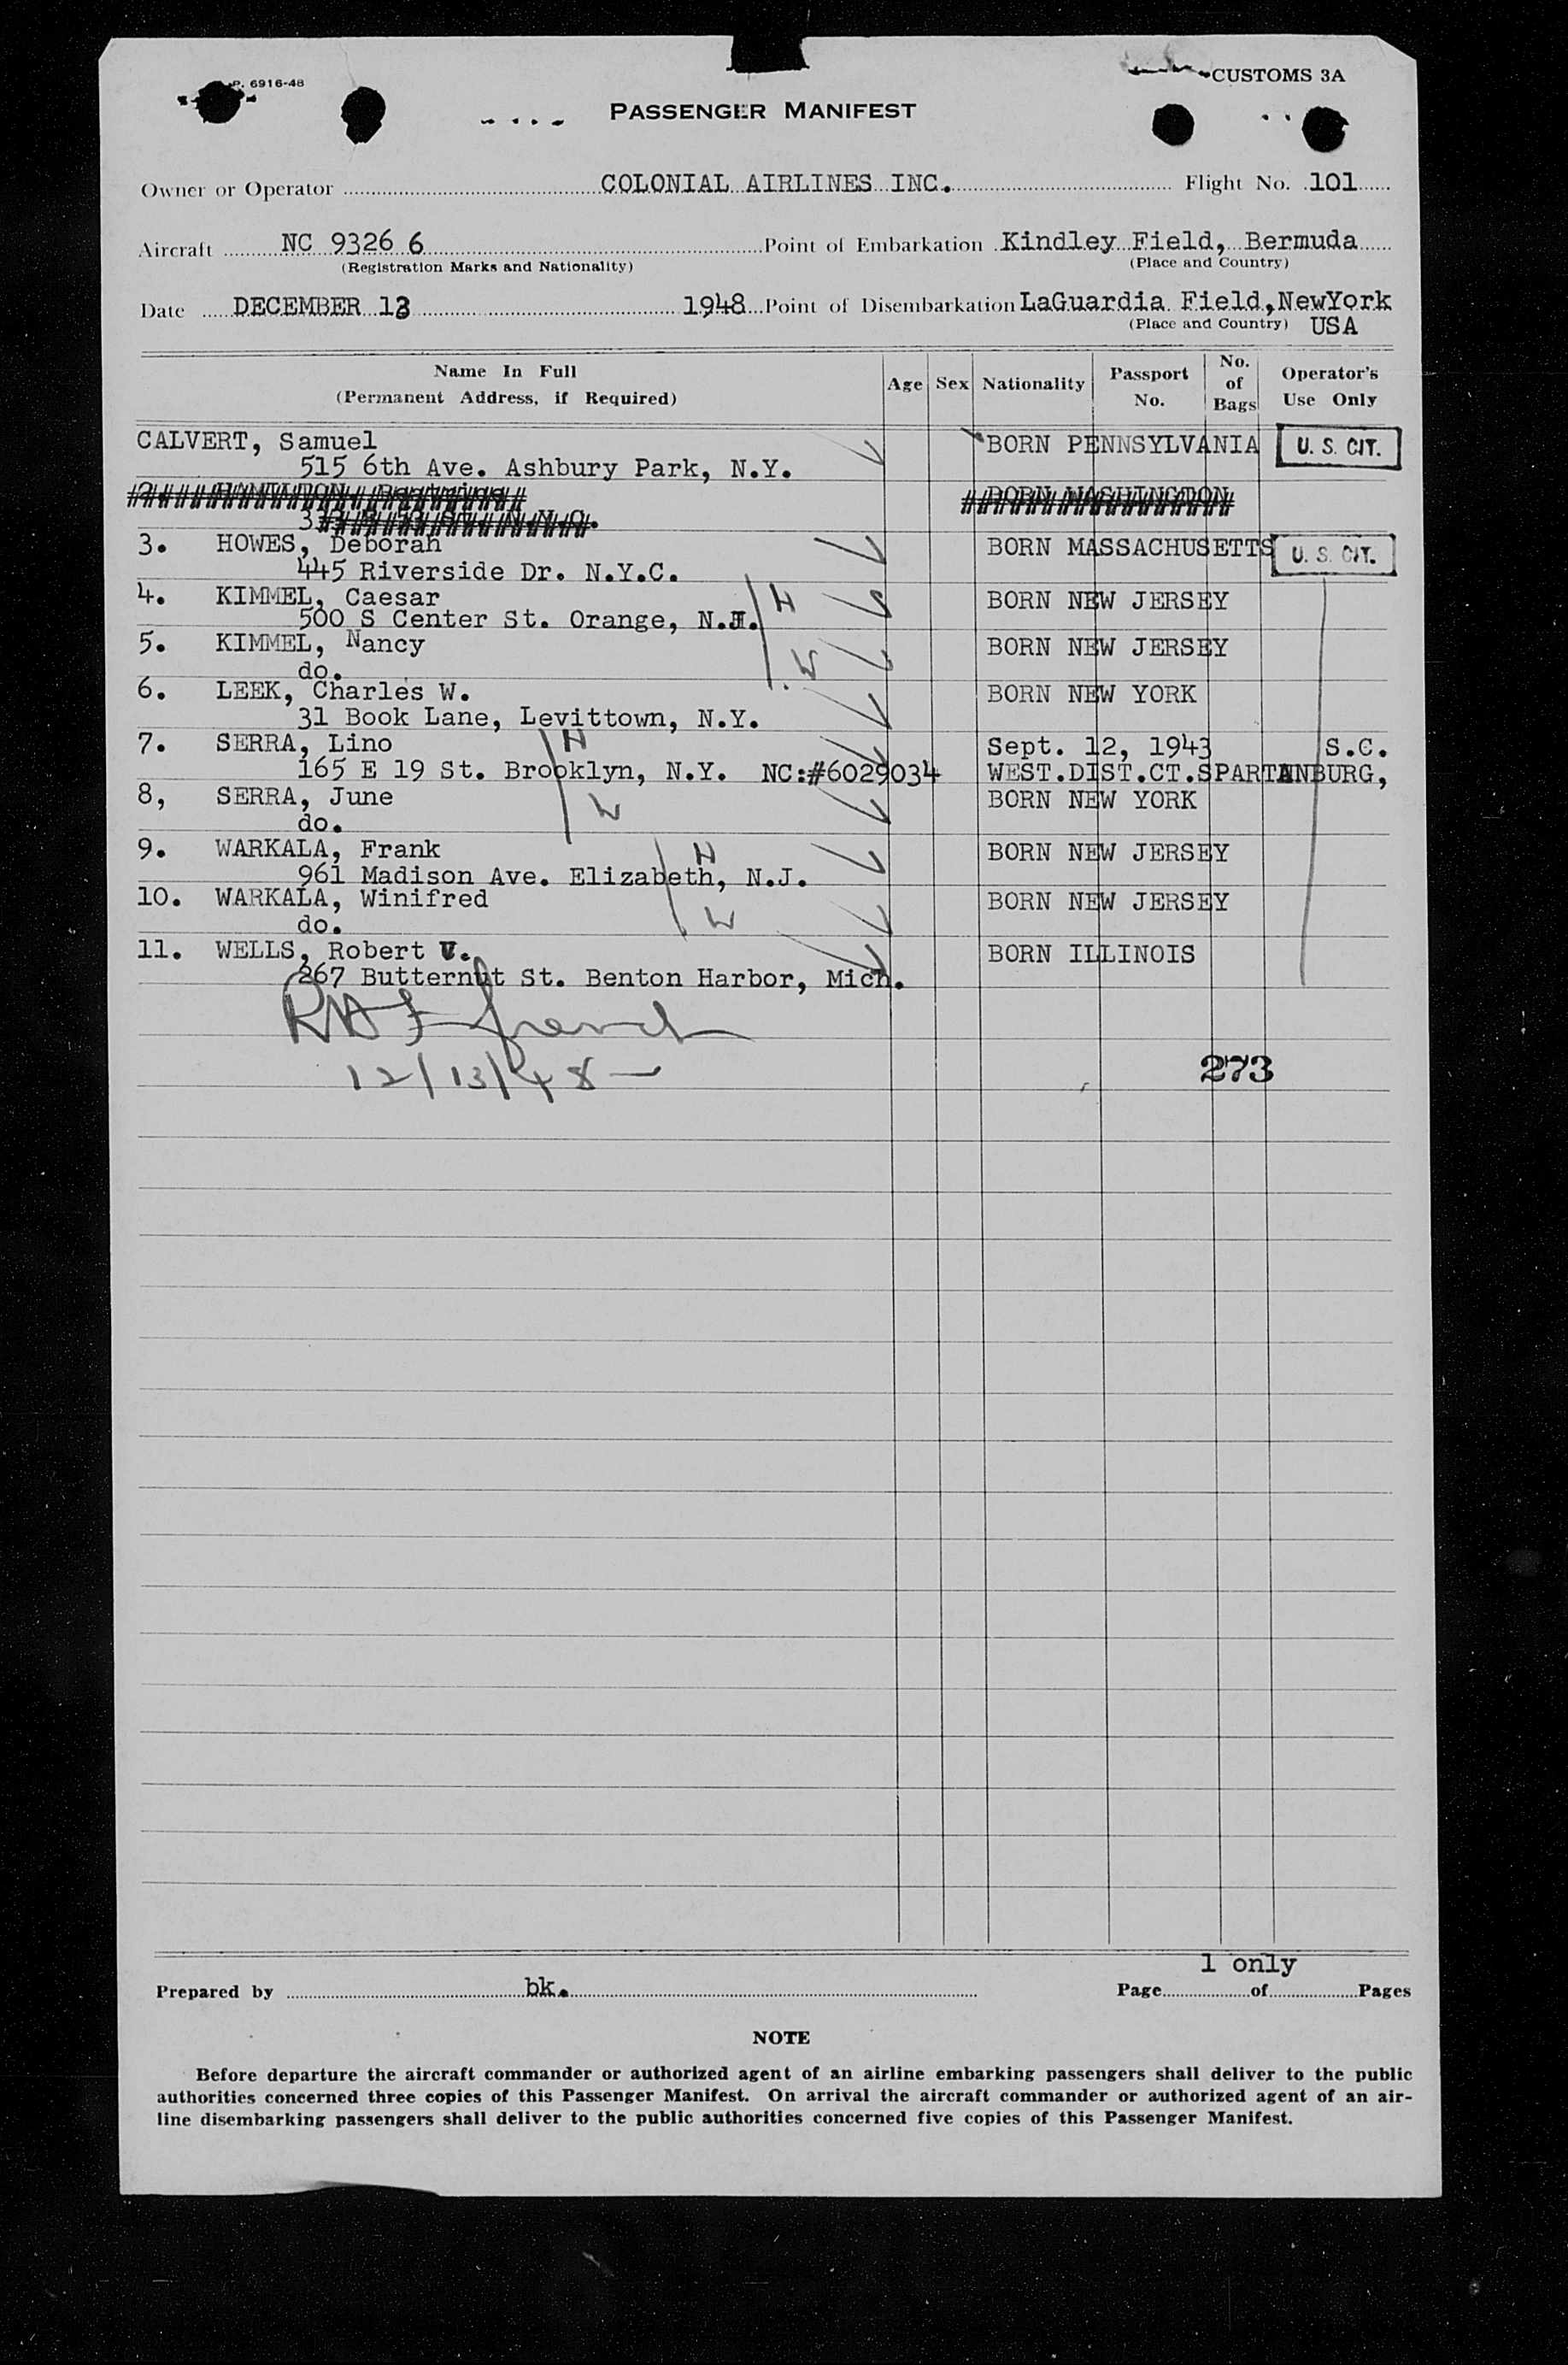 P. 6916-48
CUSTOMS 3A
PASSENGER MANIFEST
Owner or Operator COLONIAL AIRLINES INC. Flight No. 101
Aircraft NC 9326 6 Point of Embarkation Kindley Field, Bermuda
(Registration Marks and Nationality) (Place and Country)
Date DECEMBER 13 1948 Point of Disembarkation LaGuardia Field, NewYork
(Place and Country) USA
Name In Full (Permanent Address, if Required) Age Sex Nationality Passport No. No. of Bags Operator's Use Only
CALVERT, Samuel BORN PENNSYLVANIA U. S. CIT.
515 6th Ave. Ashbury Park, N.Y.
2. HAMILTON, Beatrice BORN WASHINGTON
3. HOWES, Deborah BORN MASSACHUSETTS U. S. CIT.
445 Riverside Dr. N.Y.C.
4. KIMMEL, Caesar H BORN NEW JERSEY
500 S Center St. Orange, N.J.
5. KIMMEL, Nancy W BORN NEW JERSEY
do.
6. LEEK, Charles W. BORN NEW YORK
31 Book Lane, Levittown, N.Y.
7. SERRA, Lino H Sept. 12, 1943 S.C.
165 E 19 St. Brooklyn, N.Y. NC:#6029034 WEST.DIST.CT.SPARTANBURG,
8, SERRA, June W BORN NEW YORK
do.
9. WARKALA, Frank H BORN NEW JERSEY
961 Madison Ave. Elizabeth, N.J.
10. WARKALA, Winifred W BORN NEW JERSEY
do.
11. WELLS, Robert V. BORN ILLINOIS
267 Butternut St. Benton Harbor, Mich.
12/13/48
273
1 only
Prepared by bk. Page of Pages
NOTE
Before departure the aircraft commander or authorized agent of an airline embarking passengers shall deliver to the public
authorities concerned three copies of this Passenger Manifest. On arrival the aircraft commander or authorized agent of an air-
line disembarking passengers shall deliver to the public authorities concerned five copies of this Passenger Manifest.